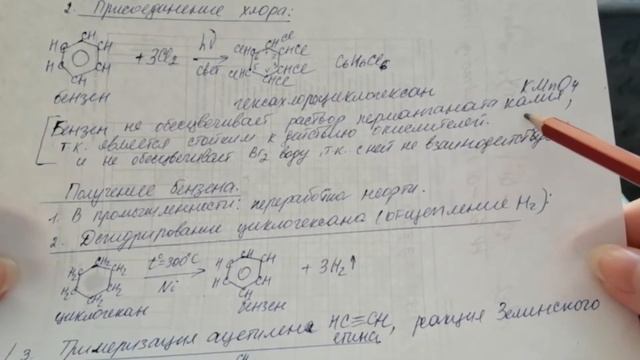 2. Присоединение хлора:
+ 3Cl2 hν свет C6H6Cl6
бензен гексахлорциклогексан KMnO4
Бензен не обесцвечивает раствор перманганата калия,
т.к. является стойким к действию окислителей.
и не обесцвечивает Br2 воду, т.к. с ней не взаимодейству
Получение бензена.
1. В промышленности: переработка нефти.
2. Дегидрирование циклогексана (отщепление H2):
t°=300°C Ni + 3H2↑
циклогексан бензен
3. Тримеризация ацетилена HC≡CH, реакция Зелинского
этина